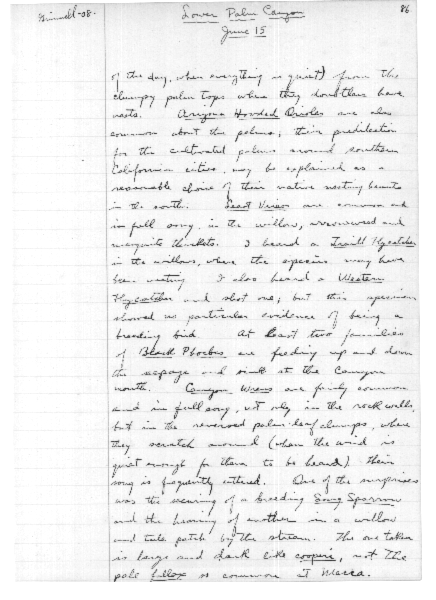 Grinnell-'08. Lower Palm Canyon 86
June 15
of the day, when everything is quiet) from the
clumpy palm tops where they doubtless have
nests. Arizona Hooded Orioles are also
common about the palms; their predilection
for the cultivated palms around southern
California cities, may be explained as a
reasonable choice of their native nesting haunts
in the south. Least Vireos are common and
in full song, in the willow, arrowweed and
mesquite thickets. I heard a Traill Flycatcher
in the willows, where the species may have
been nesting. I also heard a Western
Flycatcher and shot one; but this specimen
showed no particular evidence of being a
breeding bird. At least two families
of Black Phoebes are feeding up and down
the seepage and at the Canyon
mouth. Canyon Wrens are fairly common
and in full song, not only in the rock walls,
but in the reversed palm-leaf clumps, where
they scratch around (when the wind is
quiet enough for them to be heard) their
song is frequently uttered. One of the surprises
was the securing of a breeding Song Sparrow
and the hearing of another in a willow
and tule patch by the stream. The one taken
is large and dark like cooperi, not the
pale fallax so common at Mecca.